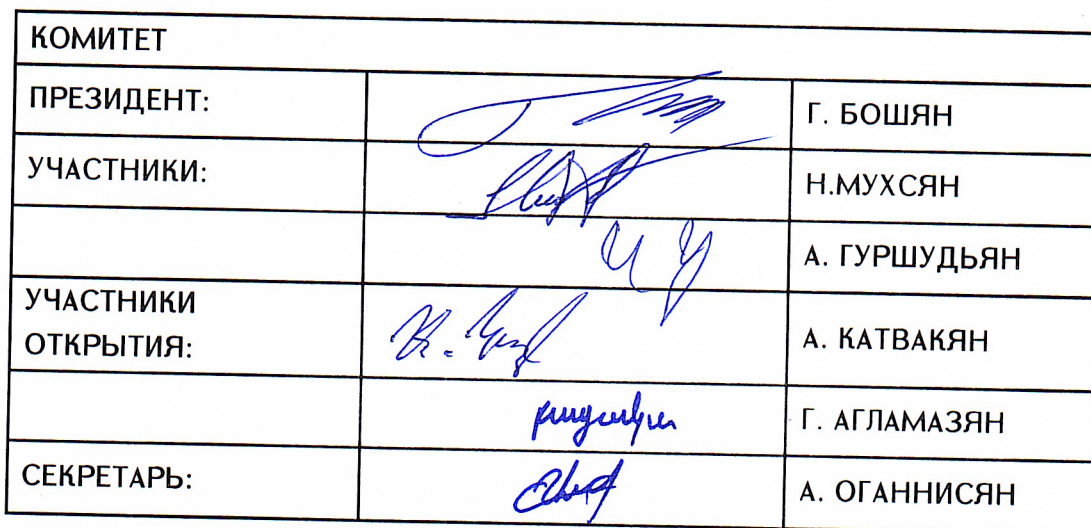 КОМИТЕТ
ПРЕЗИДЕНТ: Г. БОШЯН
УЧАСТНИКИ: Н.МУХСЯН
А. ГУРШУДЬЯН
УЧАСТНИКИ
ОТКРЫТИЯ: А. КАТВАКЯН
Г. АГЛАМАЗЯН
СЕКРЕТАРЬ: А. ОГАННИСЯН